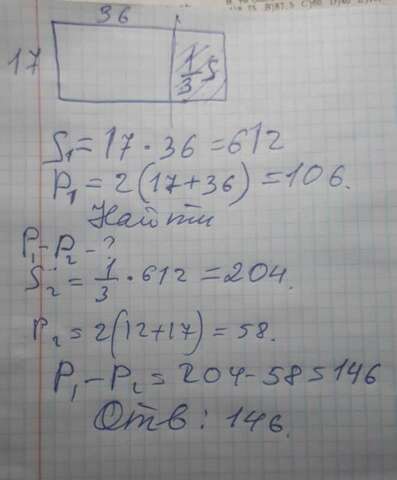 36
17
1/3 S
S₁ = 17 · 36 = 612
P₁ = 2(17+36) = 106.
Найти
P₁ - P₂ - ?
S₂ = 1/3 · 612 = 204.
P₂ = 2(12+17) = 58.
P₁ - P₂ = 204 - 58 = 146
Отв: 146.